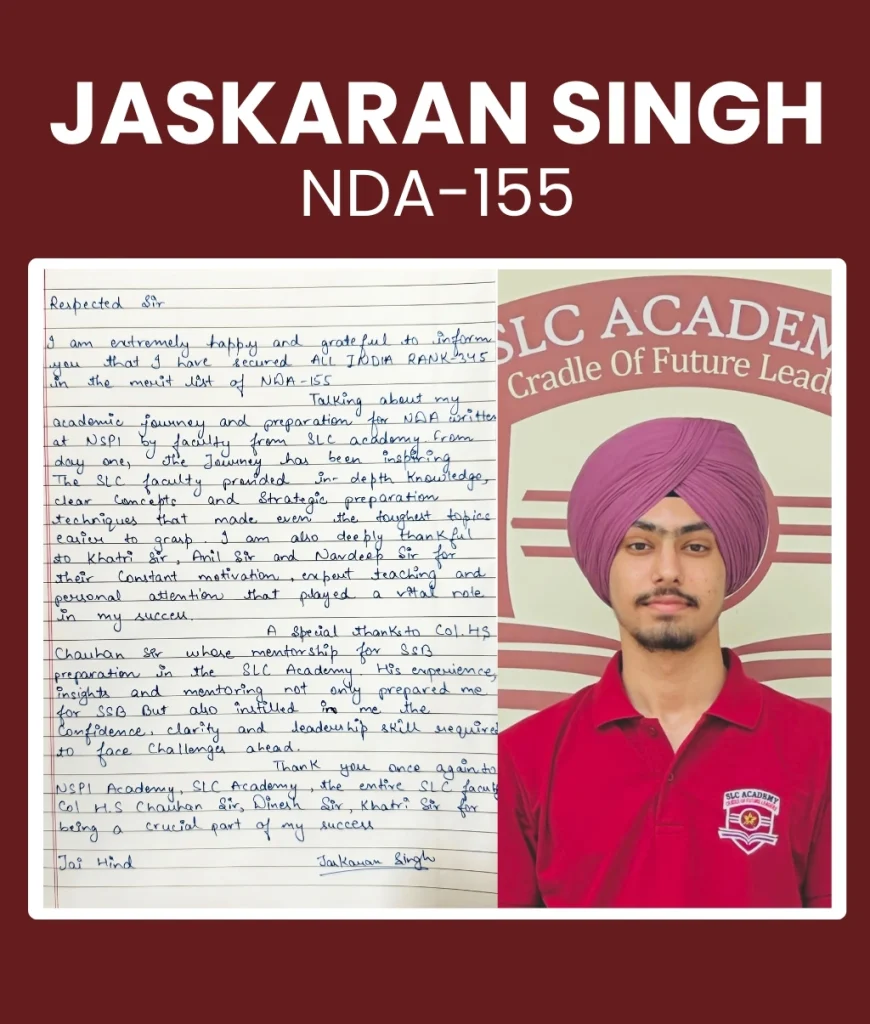 JASKARAN SINGH
NDA-155
Respected Sir
I am extremely happy and grateful to inform
you that I have secured ALL INDIA RANK-345
in the merit list of NDA-155
Talking about my
academic journey and preparation for NDA written
at NSPI by faculty from SLC academy from
day one, the Journey has been inspiring
The SLC faculty provided in-depth knowledge,
clear Concepts and Strategic preparation
techniques that made even the toughest topics
easier to grasp. I am also deeply thankful
to Khatri Sir, Anil Sir and Navdeep Sir for
their Constant motivation, expert teaching and
personal attention that played a vital role
in my success.
A Special thanks to Col. HS
Chauhan Sir whose mentorship for SSB
preparation in the SLC Academy. His experience,
insights and mentoring not only prepared me
for SSB But also instilled in me the
Confidence, clarity and leadership skill required
to face Challenges ahead.
Thank you once again to
NSPI Academy, SLC Academy, the entire SLC facult
Col H.S Chauhan Sir, Dinesh Sir, Khatri Sir for
being a crucial part of my success
Jai Hind
Jaskaran Singh
SLC ACADEM
Cradle Of Future Lead
SLC ACADEMY
CRADLE OF FUTURE LEADERS